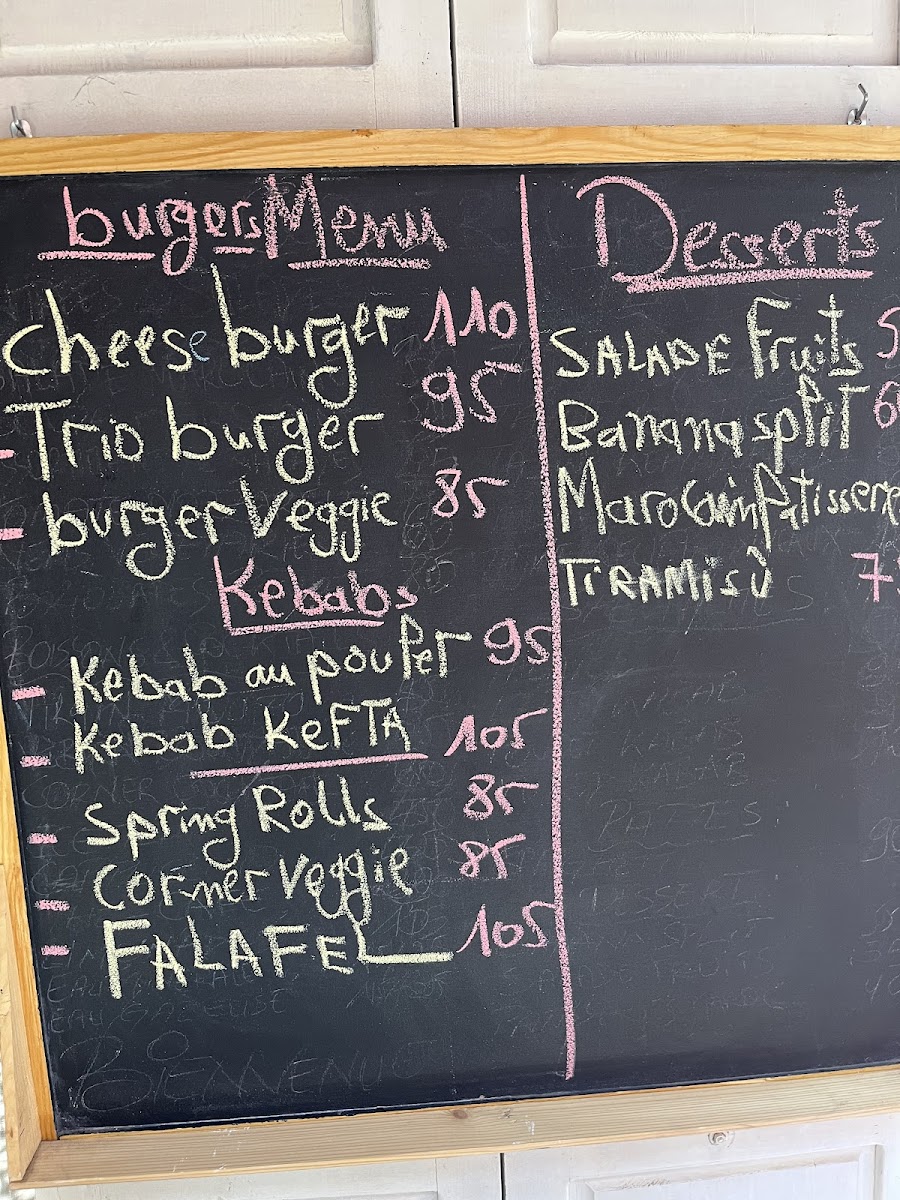 burgers Menu
cheeseburger 110
- Trio burger 95
- burger Veggie 85
Kebabs
- Kebab au poulet 95
- Kebab KeFTA 105
- Spring Rolls 85
- Corner Veggie 85
- FALAFEL 105
BiENVENU
Desserts
SALADE Fruits 5
Banana split 6
Marocain Patisserie
TiRAMiSÙ 7